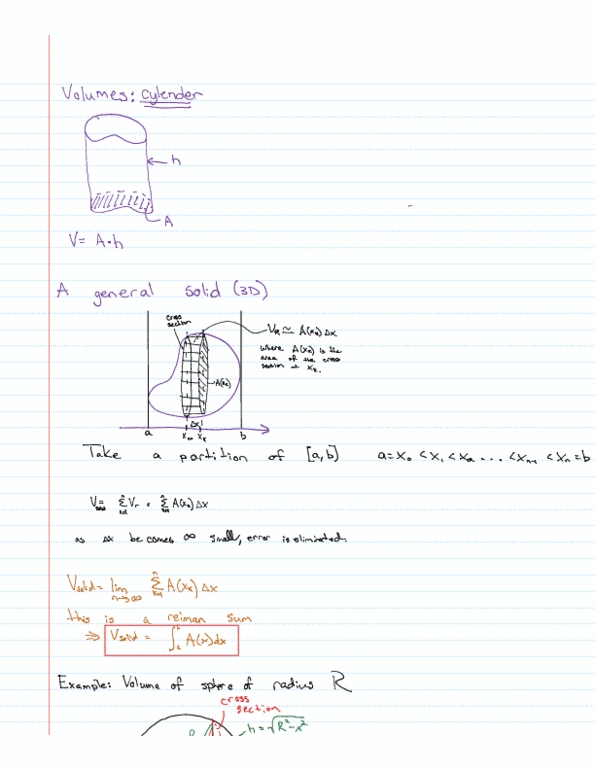 Volumes: cylender
h
A
V= A·h
A general solid (3D)
cross
section
V_k ≃ A(x_k) Δx
where A(x_k) is the
area of the cross
section at x_k.
A(x_k)
Δx
a x_k-1 x_k b
Take a partition of [a,b] a=x_0 <x_1 <x_2 ... <x_n-1 <x_n=b
as Δx be comes ∞ small, error is eliminated.
V_solid = lim n→∞ n Σ k=1 A(x_k) Δx
this is a reiman sum
⇒ V_solid = ∫_a^b A(x)dx
Example: Volume of sphere of radius R
cross
section
h=√R²-x²
R